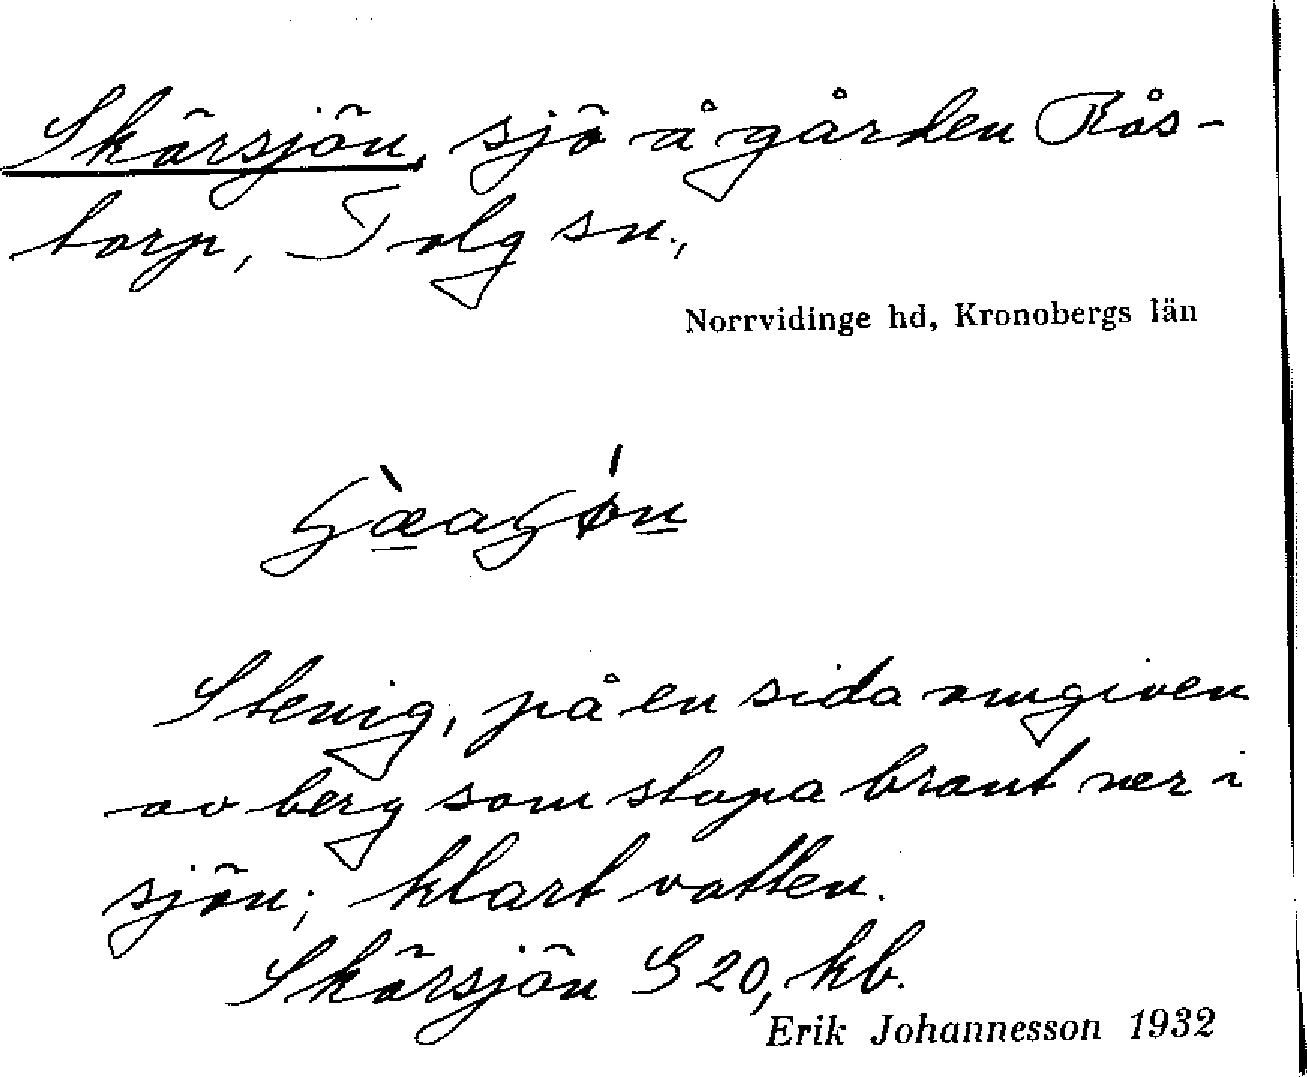 Skärsjön, sjö å gården Rås-
torp, Tolg sn.,
Norrvidinge hd, Kronobergs län
Stenig, på en sida omgiven
av berg som stupa brant ner i
sjön; klart vatten.
Skärsjön G 20, kb.
Erik Johannesson 1932